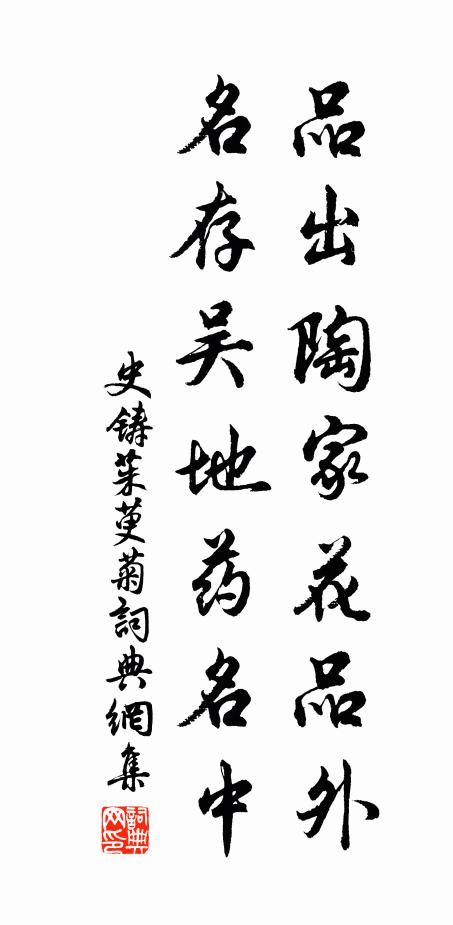 品出陶家花品外
名存吴地药名中
史鑄茱萸菊詞典網集
詞典網印